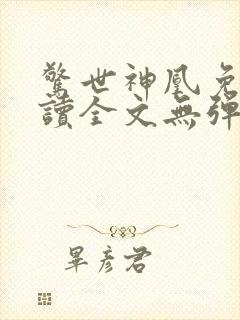 驚世神凰免
讀全文無彈
畢彥君